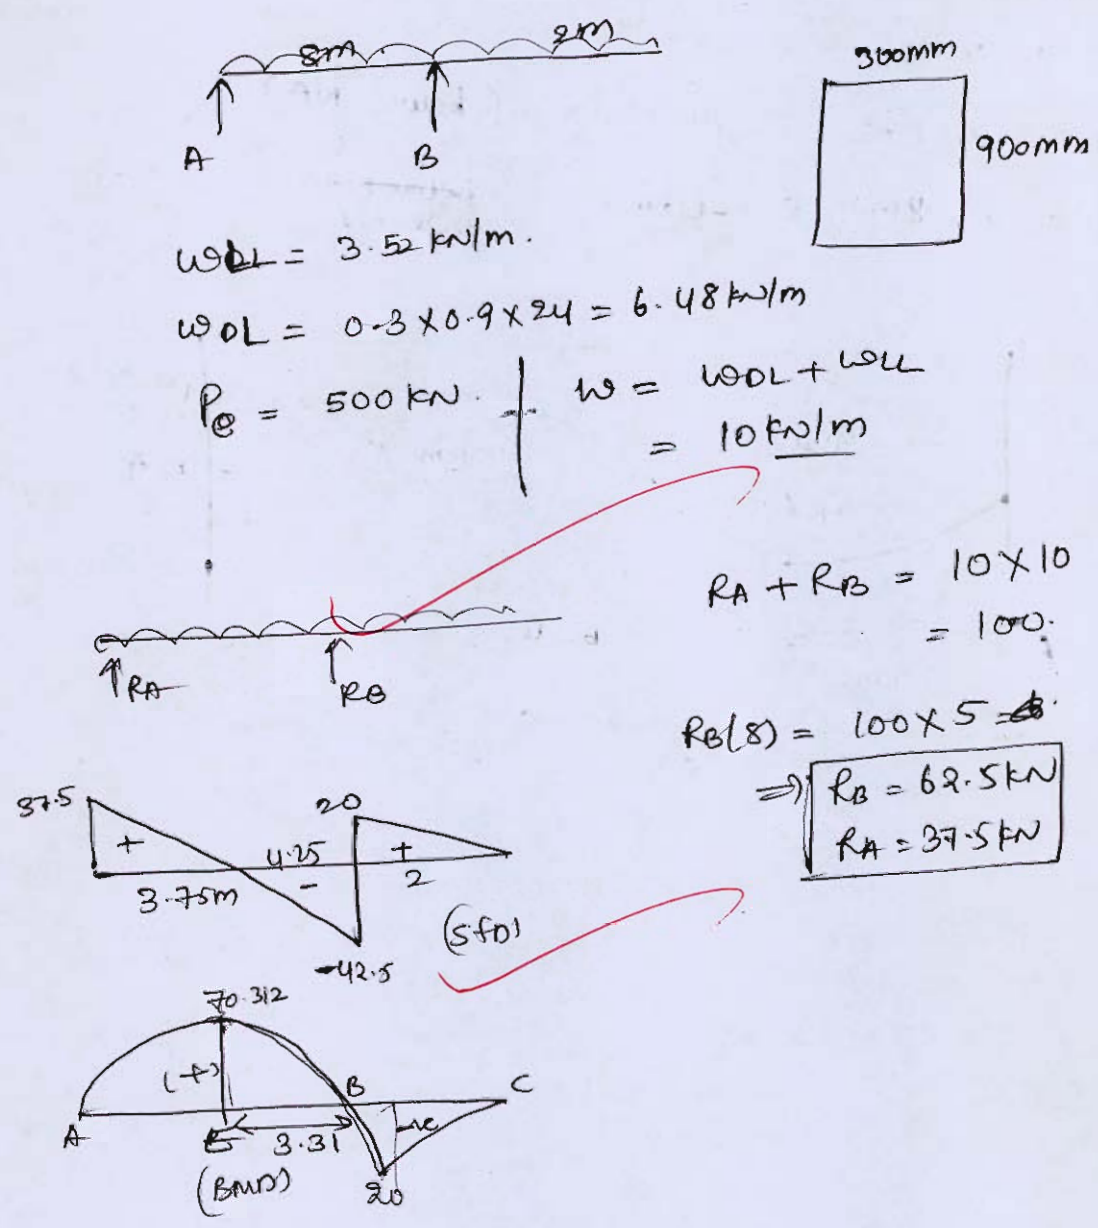 8m 2m
A B
300mm
900mm
WLL = 3.52 kN/m.
WDL = 0.3 X 0.9 X 24 = 6.48 kN/m
Pe = 500 kN.
W = WDL + WLL
= 10 kN/m
RA + RB = 10 X 10
= 100.
RA RB
RB(8) = 100 X 5 =
⇒ RB = 62.5 kN
RA = 37.5 kN
37.5 + 3.75m 4.25 - 20 + 2
-42.5
(SFD)
70.312
(+)
A E 3.31 B -ve C
20
(BMD)